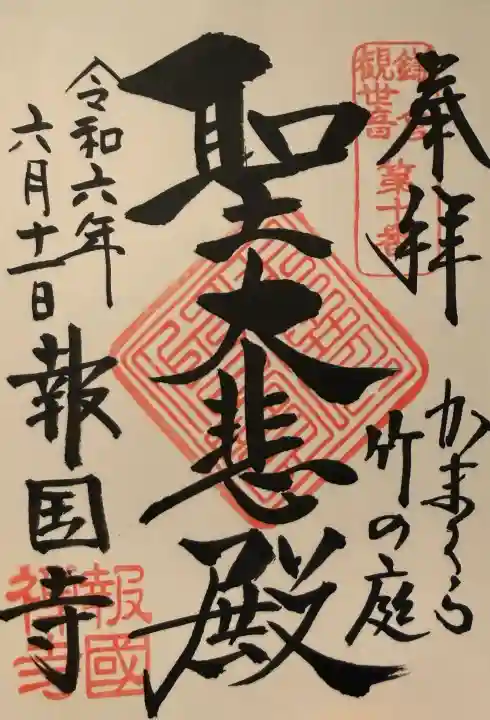 奉拝
鎌倉
観世音
第十番
かまくら
竹の庭
聖大悲殿
令和六年
六月十一日
報国寺
報國
禅寺